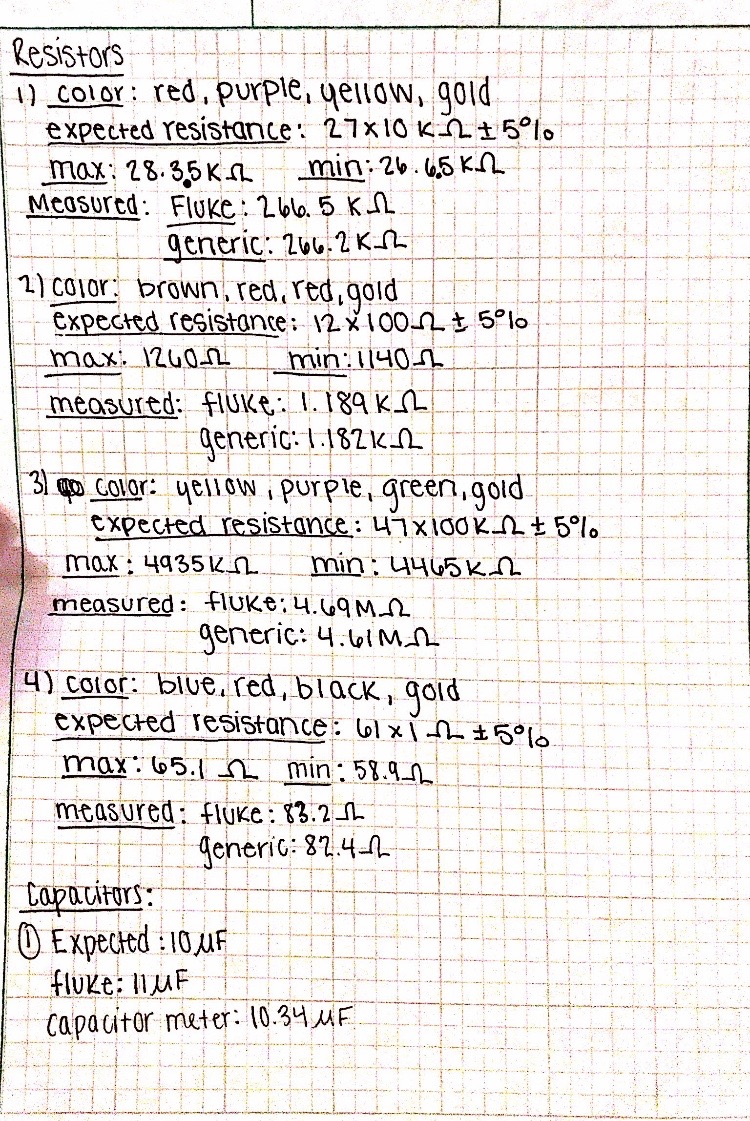 Resistors
1) color: red, purple, yellow, gold
expected resistance: 27x10 KΩ ± 5%
max: 28.35KΩ min: 26.65KΩ
Measured: Fluke: 266.5 KΩ
generic: 266.2KΩ
2) color: brown, red, red, gold
expected resistance: 12x100Ω ± 5%
max: 1260Ω min: 1140Ω
measured: fluke: 1.189KΩ
generic: 1.182KΩ
3) color: yellow, purple, green, gold
expected resistance: 47x100KΩ ± 5%
max: 4935KΩ min: 4465KΩ
measured: fluke: 4.69MΩ
generic: 4.61MΩ
4) color: blue, red, black, gold
expected resistance: 61x1 Ω ± 5%
max: 65.1 Ω min: 58.9Ω
measured: fluke: 83.2Ω
generic: 82.4Ω
Capacitors:
① Expected: 10µF
fluke: 11µF
capacitor meter: 10.34µF